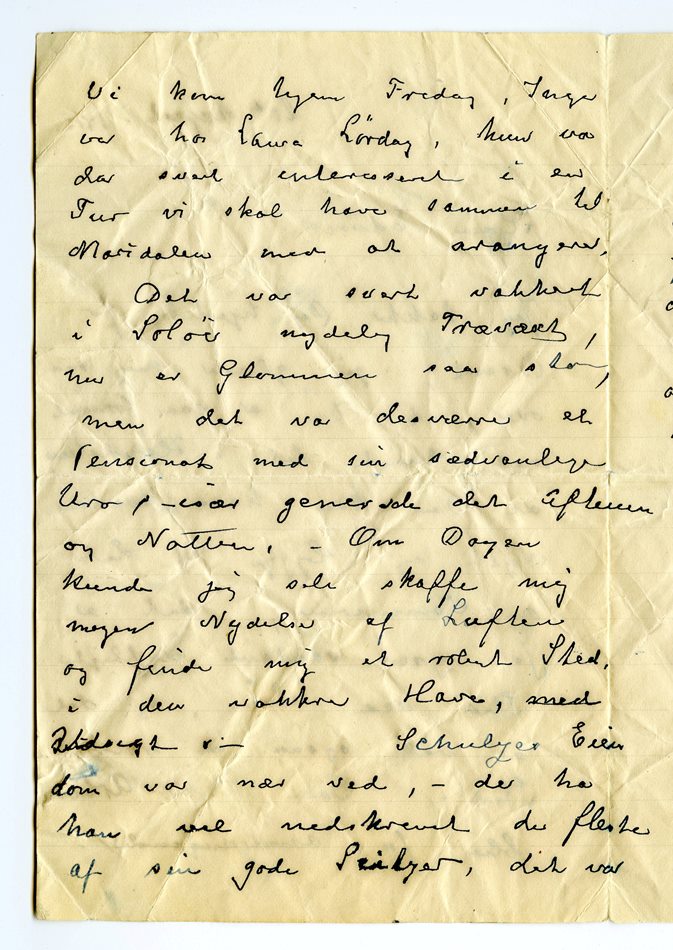 Vi kom hjem Fredag, Inga
var hos Laura Lördag, hun var
da svert interesseret i en
Tur vi skal have sammen til
Maridalen med at arangere.
Det var svert vakkert
i Solör nydelig Trævæxt,
nu er Glommen saa stor,
men det var desværre et
Pensionat med sin sædvanlige
Uro, – især generede det Aftenen
og Natten, – Om Dagen
kunde jeg selv skaffe mig
megen Nydelse af Luften
og finde mig et roligt Sted,
i den vakkre Have, med
Udsigt – Schulzes Eien
dom var nær ved, – der har
han vel nedskrevet de fleste
af sin gode , det var